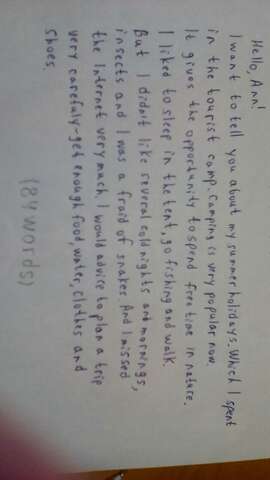 Hello, Ann!
I want to tell you about my summer holidays. Which I spent
in the tourist camp. Camping is very popular now.
It gives the opportunity to spend free time in nature.
I liked to sleep in the tent, go fishing and walk.
But I didn't like several cold nights and mornings,
insects and I was a fraid of snakes And I missed
the Internet very much. I would advice to plan a trip
very carefuly-get enough food, water, clothes and
shoes
(84 words)